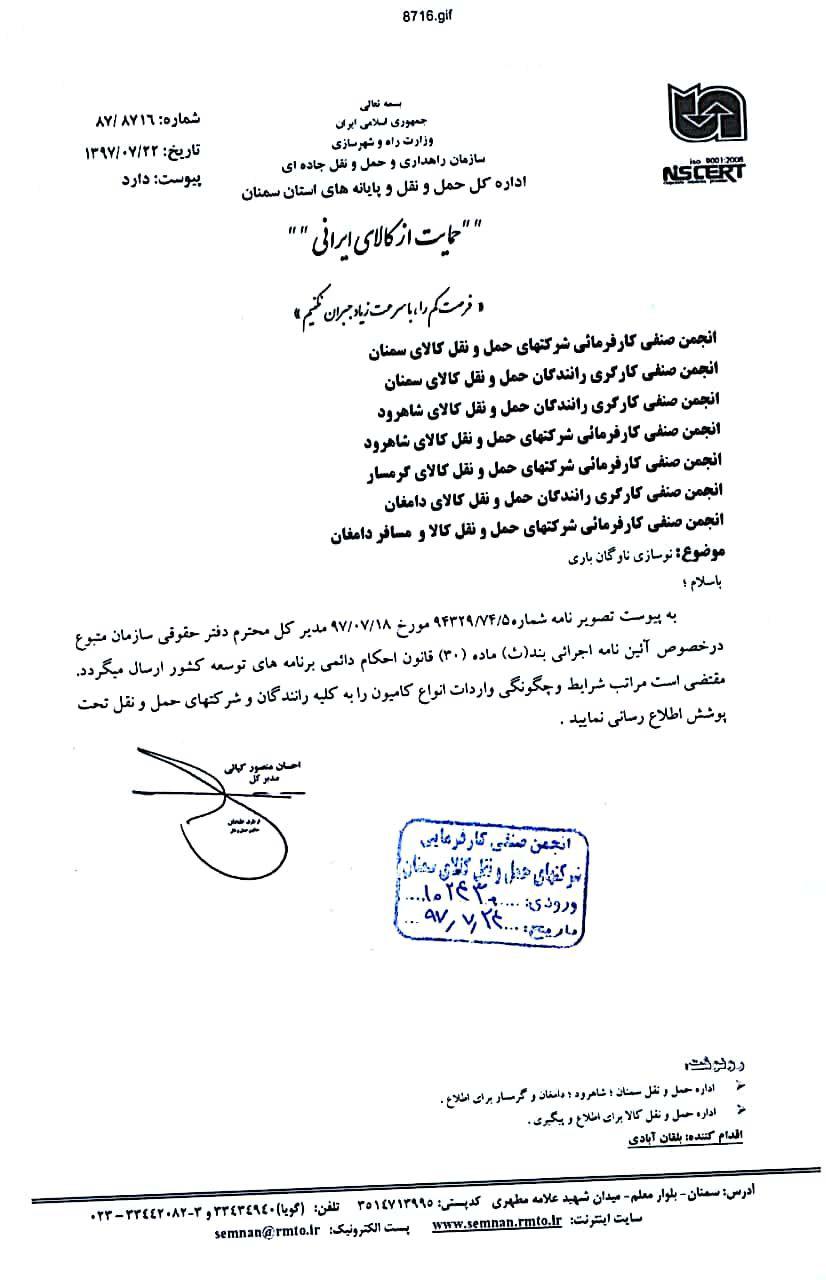 8716.gif
بسمه تعالی
جمهوری اسلامی ایران
وزارت راه و شهرسازی
سازمان راهداری و حمل و نقل جاده ای
اداره کل حمل و نقل و پایانه های استان سمنان
شماره: ۸۷/۸۷۱۶
تاریخ: ۱۳۹۷/۰۷/۲۲
پیوست: دارد
iso 9001:2008
NSCERT
""حمایت از کالای ایرانی""
«فرصت کم را، با سرعت زیاد جبران نکنیم»
انجمن صنفی کارفرمائی شرکتهای حمل و نقل کالای سمنان
انجمن صنفی کارگری رانندگان حمل و نقل کالای سمنان
انجمن صنفی کارگری رانندگان حمل و نقل کالای شاهرود
انجمن صنفی کارفرمائی شرکتهای حمل و نقل کالای شاهرود
انجمن صنفی کارفرمائی شرکتهای حمل و نقل کالای گرمسار
انجمن صنفی کارگری رانندگان حمل و نقل کالای دامغان
انجمن صنفی کارفرمائی شرکتهای حمل و نقل کالا و مسافر دامغان
موضوع: نوسازی ناوگان باری
باسلام ؛
به پیوست تصویر نامه شماره۹۴۳۲۹/۷۴/۵ مورخ ۹۷/۰۷/۱۸ مدیر کل محترم دفتر حقوقی سازمان متبوع
درخصوص آئین نامه اجرائی بند(ث) ماده (۳۰) قانون احکام دائمی برنامه های توسعه کشور ارسال میگردد.
مقتضی است مراتب شرایط وچگونگی واردات انواع کامیون را به کلیه رانندگان و شرکتهای حمل و نقل تحت
پوشش اطلاع رسانی نمایید .
احسان منصور کیائی
مدیر کل
انجمن صنفی کارفرمایی
شرکتهای حمل و نقل کالای سمنان
ورودی:
تاریخ: ۹۷/۷/۲۴
رونوشت:
اداره حمل و نقل سمنان ؛ شاهرود ؛ دامغان و گرمسار برای اطلاع .
اداره حمل و نقل کالا برای اطلاع و پیگیری .
اقدام کننده: بلقان آبادی
آدرس: سمنان- بلوار معلم- میدان شهید علامه مطهری کدپستی: ۳۵۱۴۷۱۳۹۹۵ تلفن: (گویا)۳۳۴۳۴۹۴۰ و ۳-۳۳۴۴۲۰۸۲-۰۲۳
سایت اینترنت: www.semnan.rmto.ir پست الکترونیک: semnan@rmto.ir